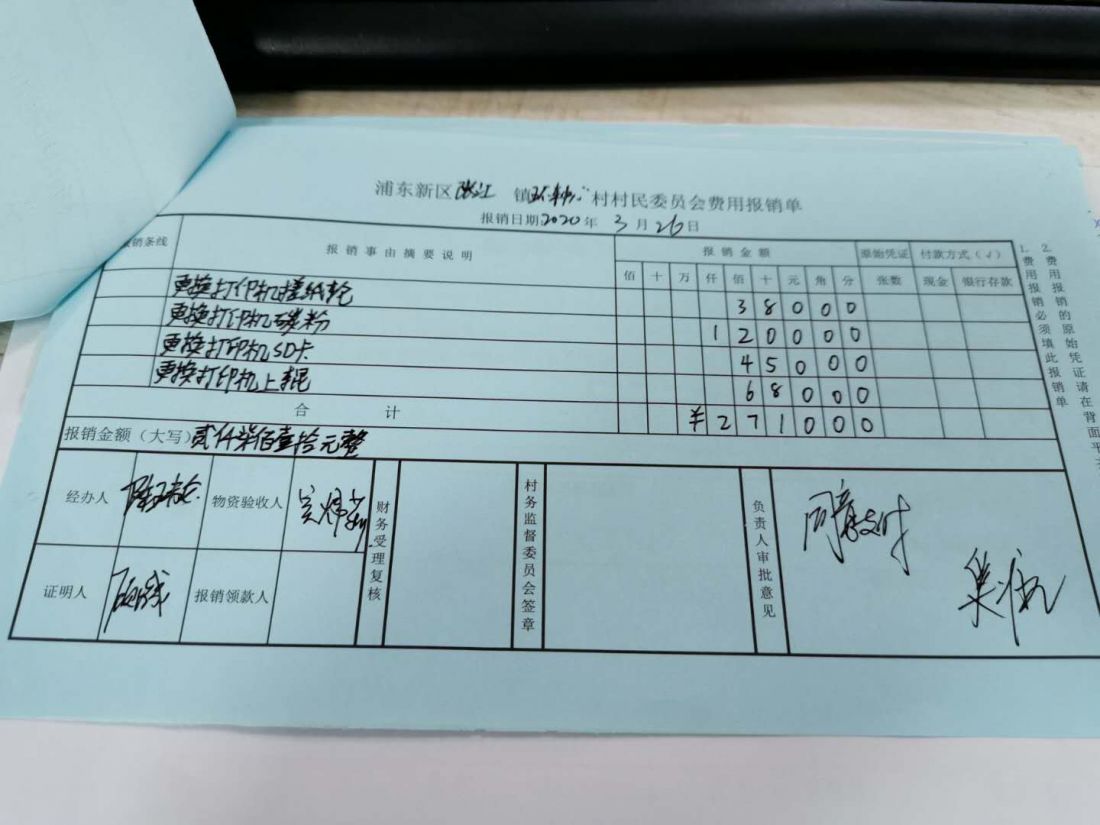 浦东新区张江镇环东村村民委员会费用报销单
报销日期2020年3月26日
报销条线 报销事由摘要说明 报销金额 原始凭证 付款方式(√)
佰 十 万 仟 佰 十 元 角 分 张数 现金 银行存款
更换打印机搓纸轮 3 8 0 0 0
更换打印机碳粉 1 2 0 0 0 0
更换打印机SD卡 4 5 0 0 0
更换打印机上辊 6 8 0 0 0
合计 ¥ 2 7 1 0 0 0
报销金额(大写) 贰仟柒佰壹拾元整
经办人 物资验收人 财务受理复核 村务监督委员会签章 负责人审批意见 同意支付
证明人 报销领款人
1. 费用报销必须填此报销单
2. 费用报销的原始凭证请在背面平